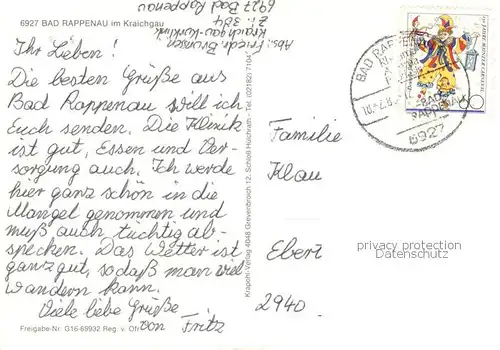 6927 BAD RAPPENAU im Kraichgau
Abs: Friedr.
Kraichgau-Klinik
Zi: 314
6927 Bad Rappenau
Ihr Lieben!
Die besten Grüße aus
Bad Rappenau will ich
Euch senden. Die Klinik
ist gut, Essen und Ver-
sorgung auch. Ich werde
hier ganz schön in die
Mangel genommen und
muß auch tüchtig ab-
specken. Das Wetter ist
ganz gut, sodaß man viel
wandern kann.
Viele liebe Grüße
von Fritz
Freigabe-Nr. G16-69932 Reg. v.
Krapohl-Verlag 4048 Grevenbroich 12, Schloß Hülchrath - Tel. (02182) 7104
BAD RAPPENAU
BAD
RAPPENAU
6927
60
Familie
Klau
Ebert
2940
privacy protection
Datenschutz